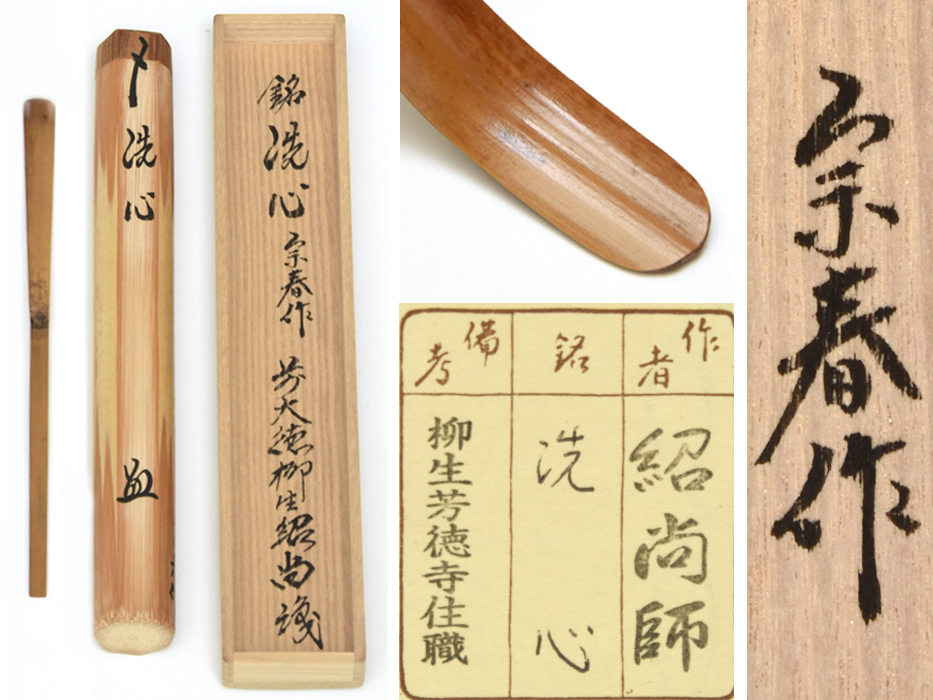 〆洗心
銘洗心
宗春作
芳大徳柳生紹尚識
作者
紹尚師
銘
洗心
備考
柳生芳徳寺住職
宗春作